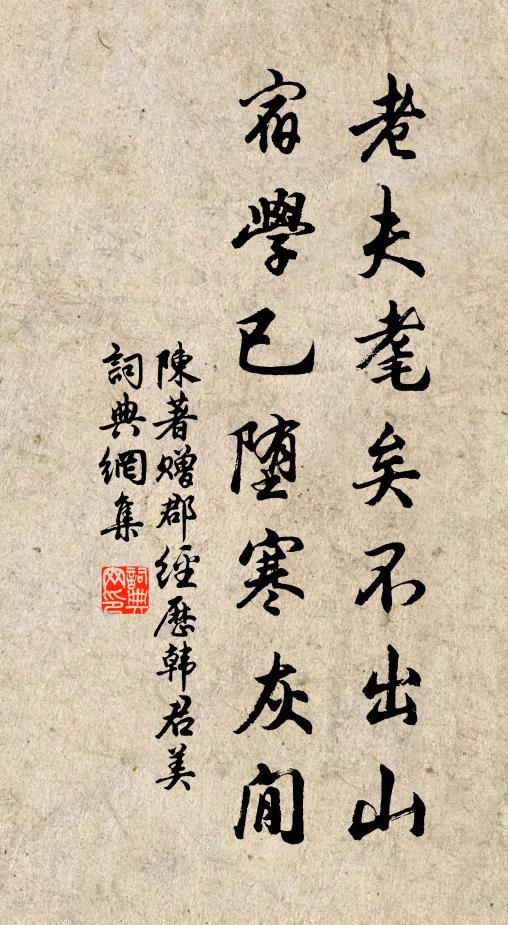 老夫耄矣不出山
宿學已堕寒灰間
陳著贈郡經歷韩君美
詞典網集
詞典網印